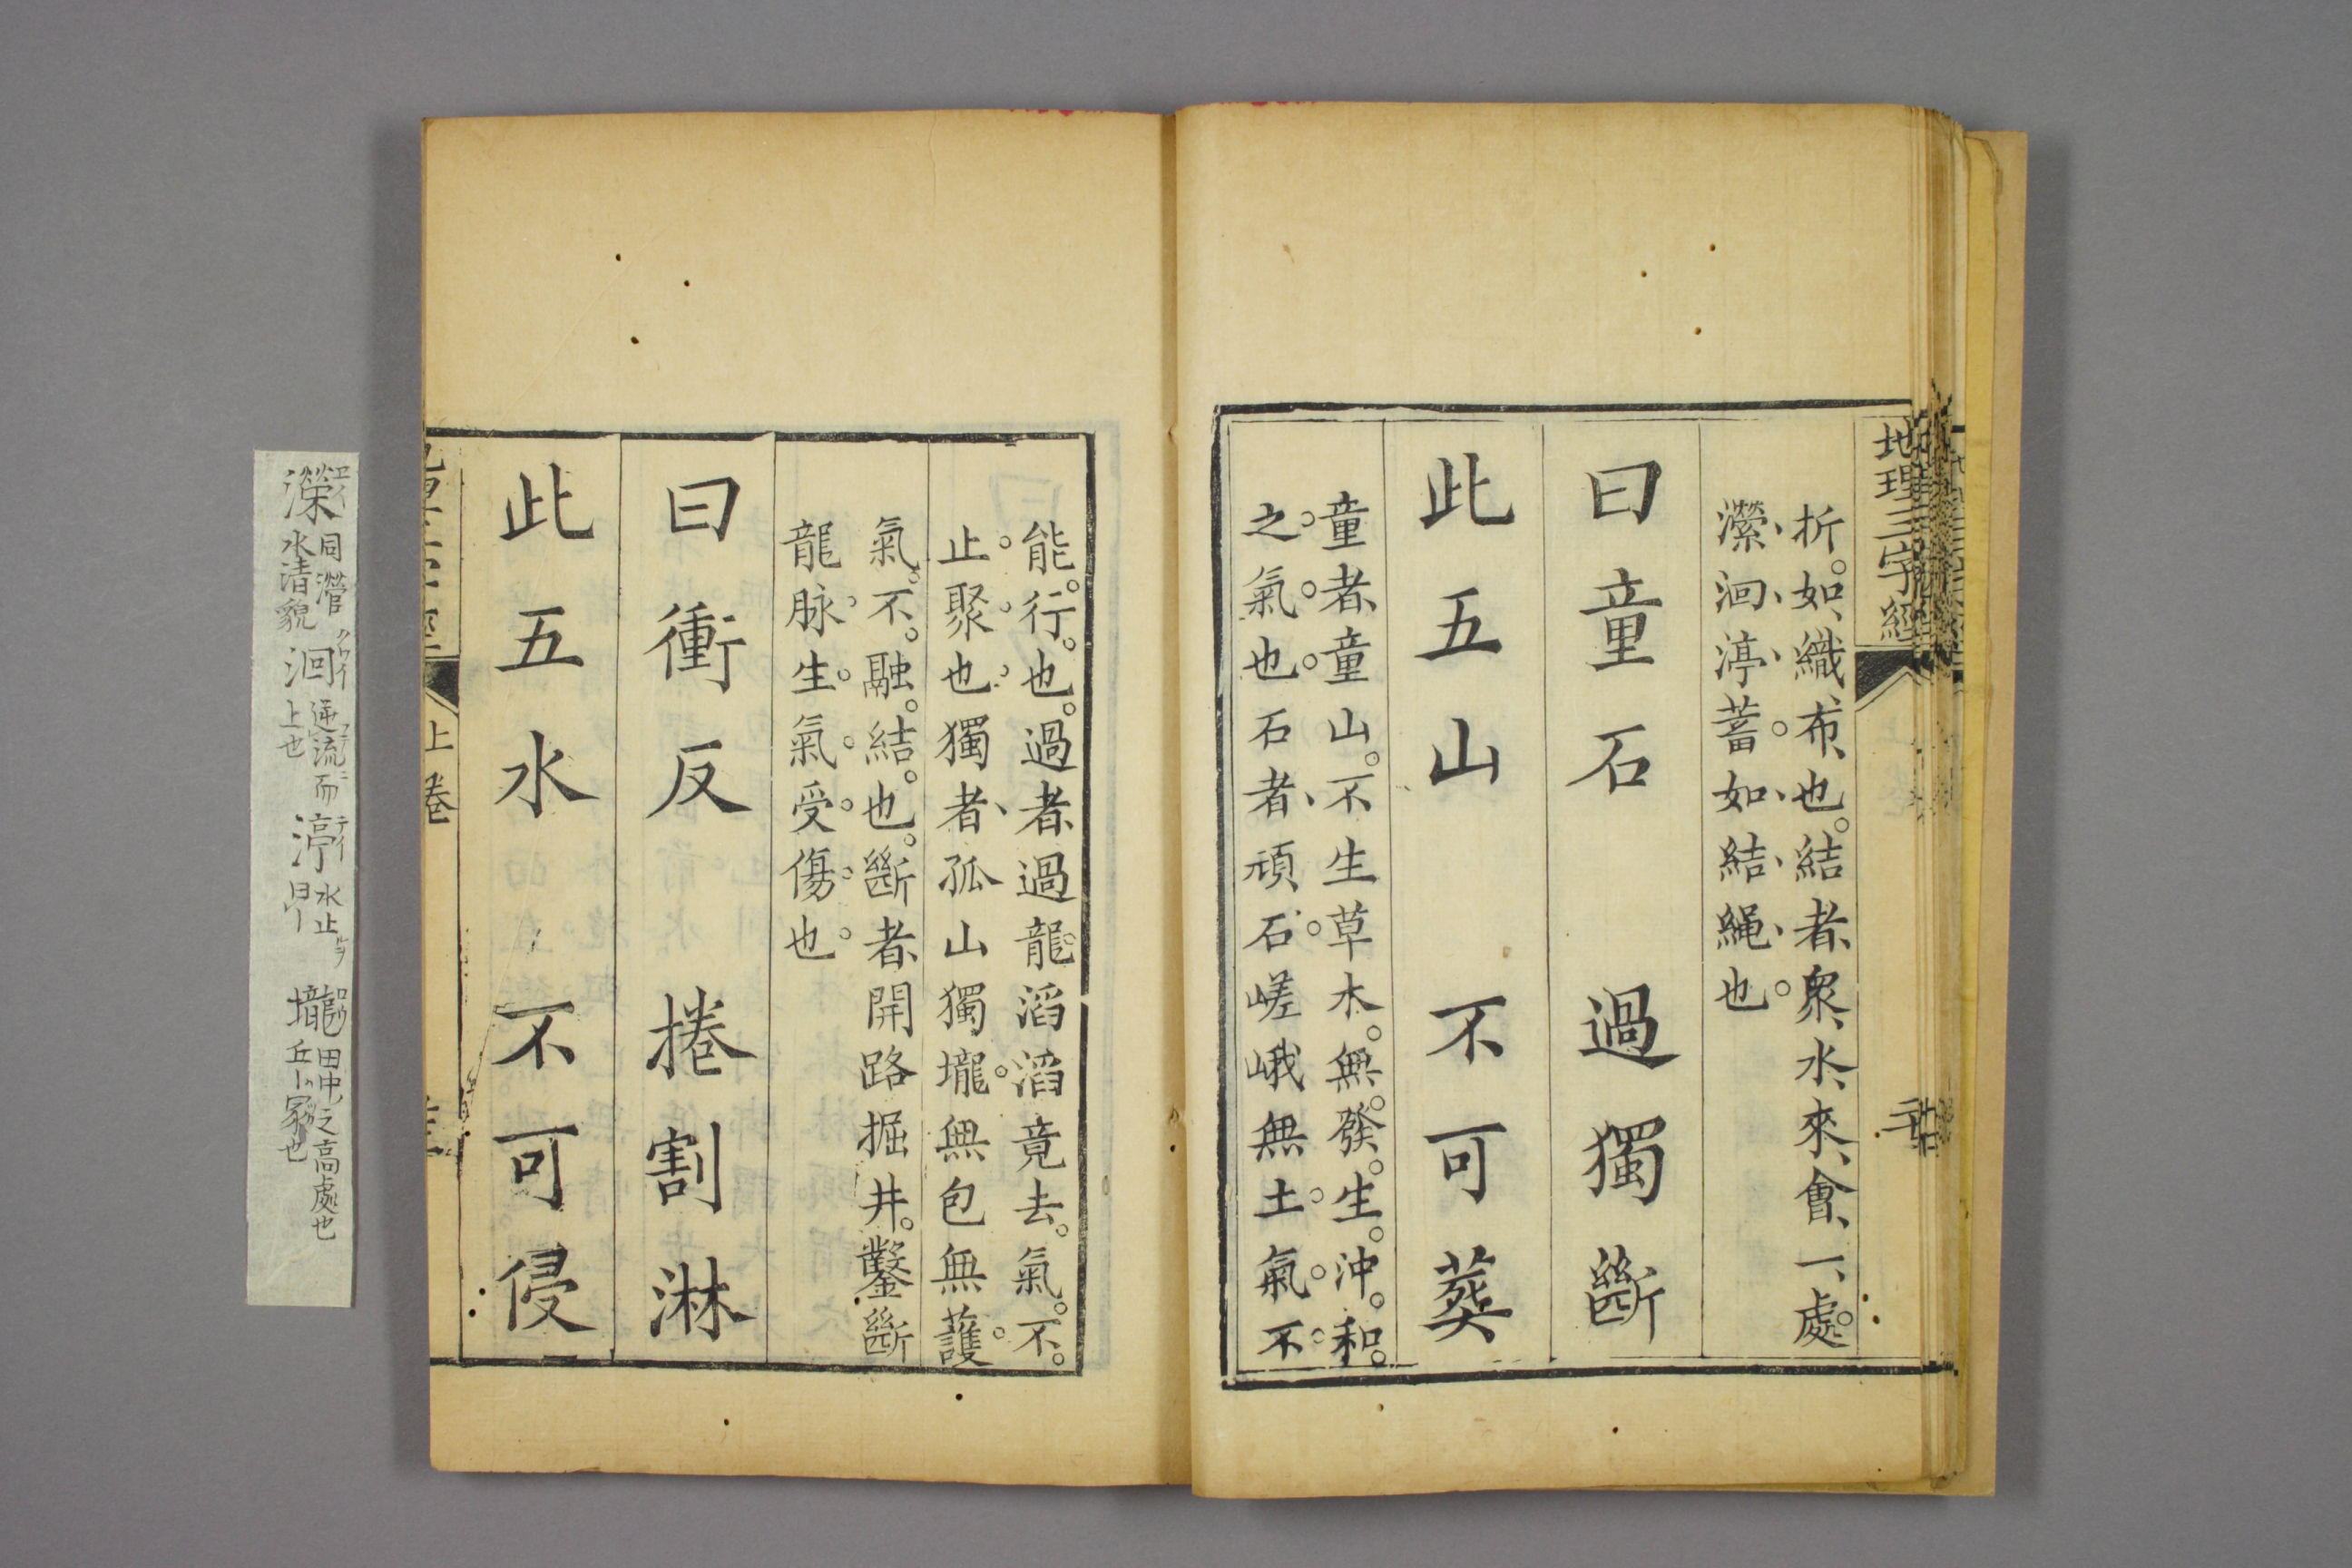 地理三字經
折。如、織、布、也。結者、衆、水、來、會、一、處。
瀠、洄、渟、蓄。如、結、繩、也。
曰童石 過獨斷
此五山 不可葬
童者、童山。不生草木。無。發。生。沖。和。
之。氣。也。石者、頑石。嵯峨無土。氣。不。
能。行。也。過者、過龍滔滔竟去。氣。不。
止。聚。也。獨者、孤山獨壠。無包無護。
氣。不。融。結。也。斷者、開路掘井。鑿斷
龍脉。生。氣。受。傷。也。
曰衝反 捲割淋
此五水 不可侵
上卷
濚 エイ 同瀯 水清貌
洄 逆流而上也
渟 テイ 水止曰
壠 田中之高處也 丘冢也